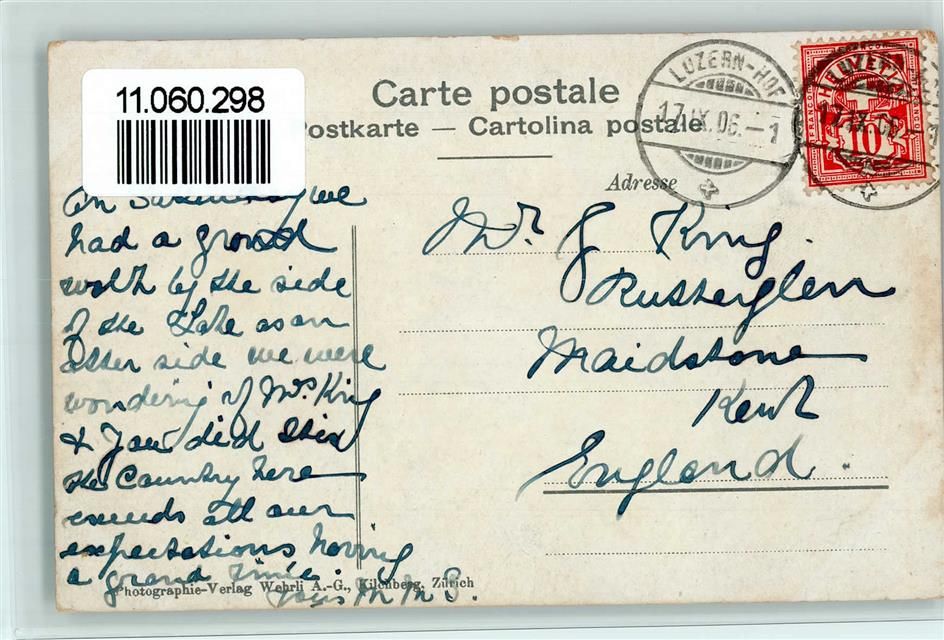 11.060.298
Carte postale
Postkarte — Cartolina postale
Adresse
LUZERN-HOF
17.IX.06.-1
FRANCO
10
17.IX.06
On we
had a grand
walk by the side
of the Lake as on
Other side we were
wondering if Mrs King
& You did this
the Country here
exceeds all our
expectations having
a grand time.
Yours M M S.
Mr. J King.
Rutherglen
Maidstone
Kent
England.
Photographie-Verlag Wehrli A.-G., Kilchberg, Zürich